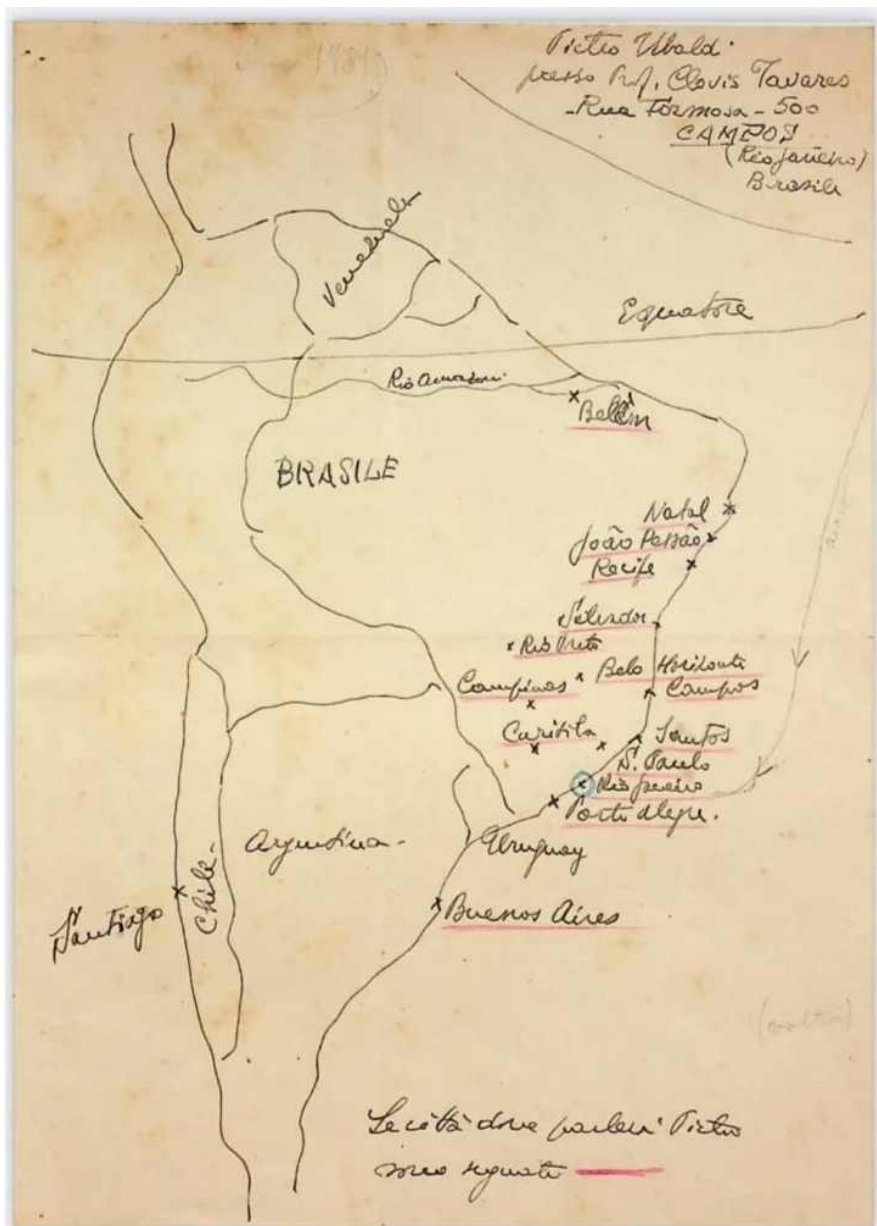 Pietro Ubaldi
presso Prof. Clovis Tavares
- Rua Formosa - 500
CAMPOS
(Rio Janeiro)
Brasile
Venezuela
Equatore
Rio Amazoni
Belém
BRASILE
Natal
João Pessão
Recife
Salvador
Rio Preto
Belo Horizonte
Campinas
Campos
Curitiba
Santos
S. Paulo
Rio Janeiro
Porto Alegre.
Argentina -
Uruguay
Chile -
Santiago
Buenos Aires
(volta)
Le città dove parlerà Pietro
sono segnate